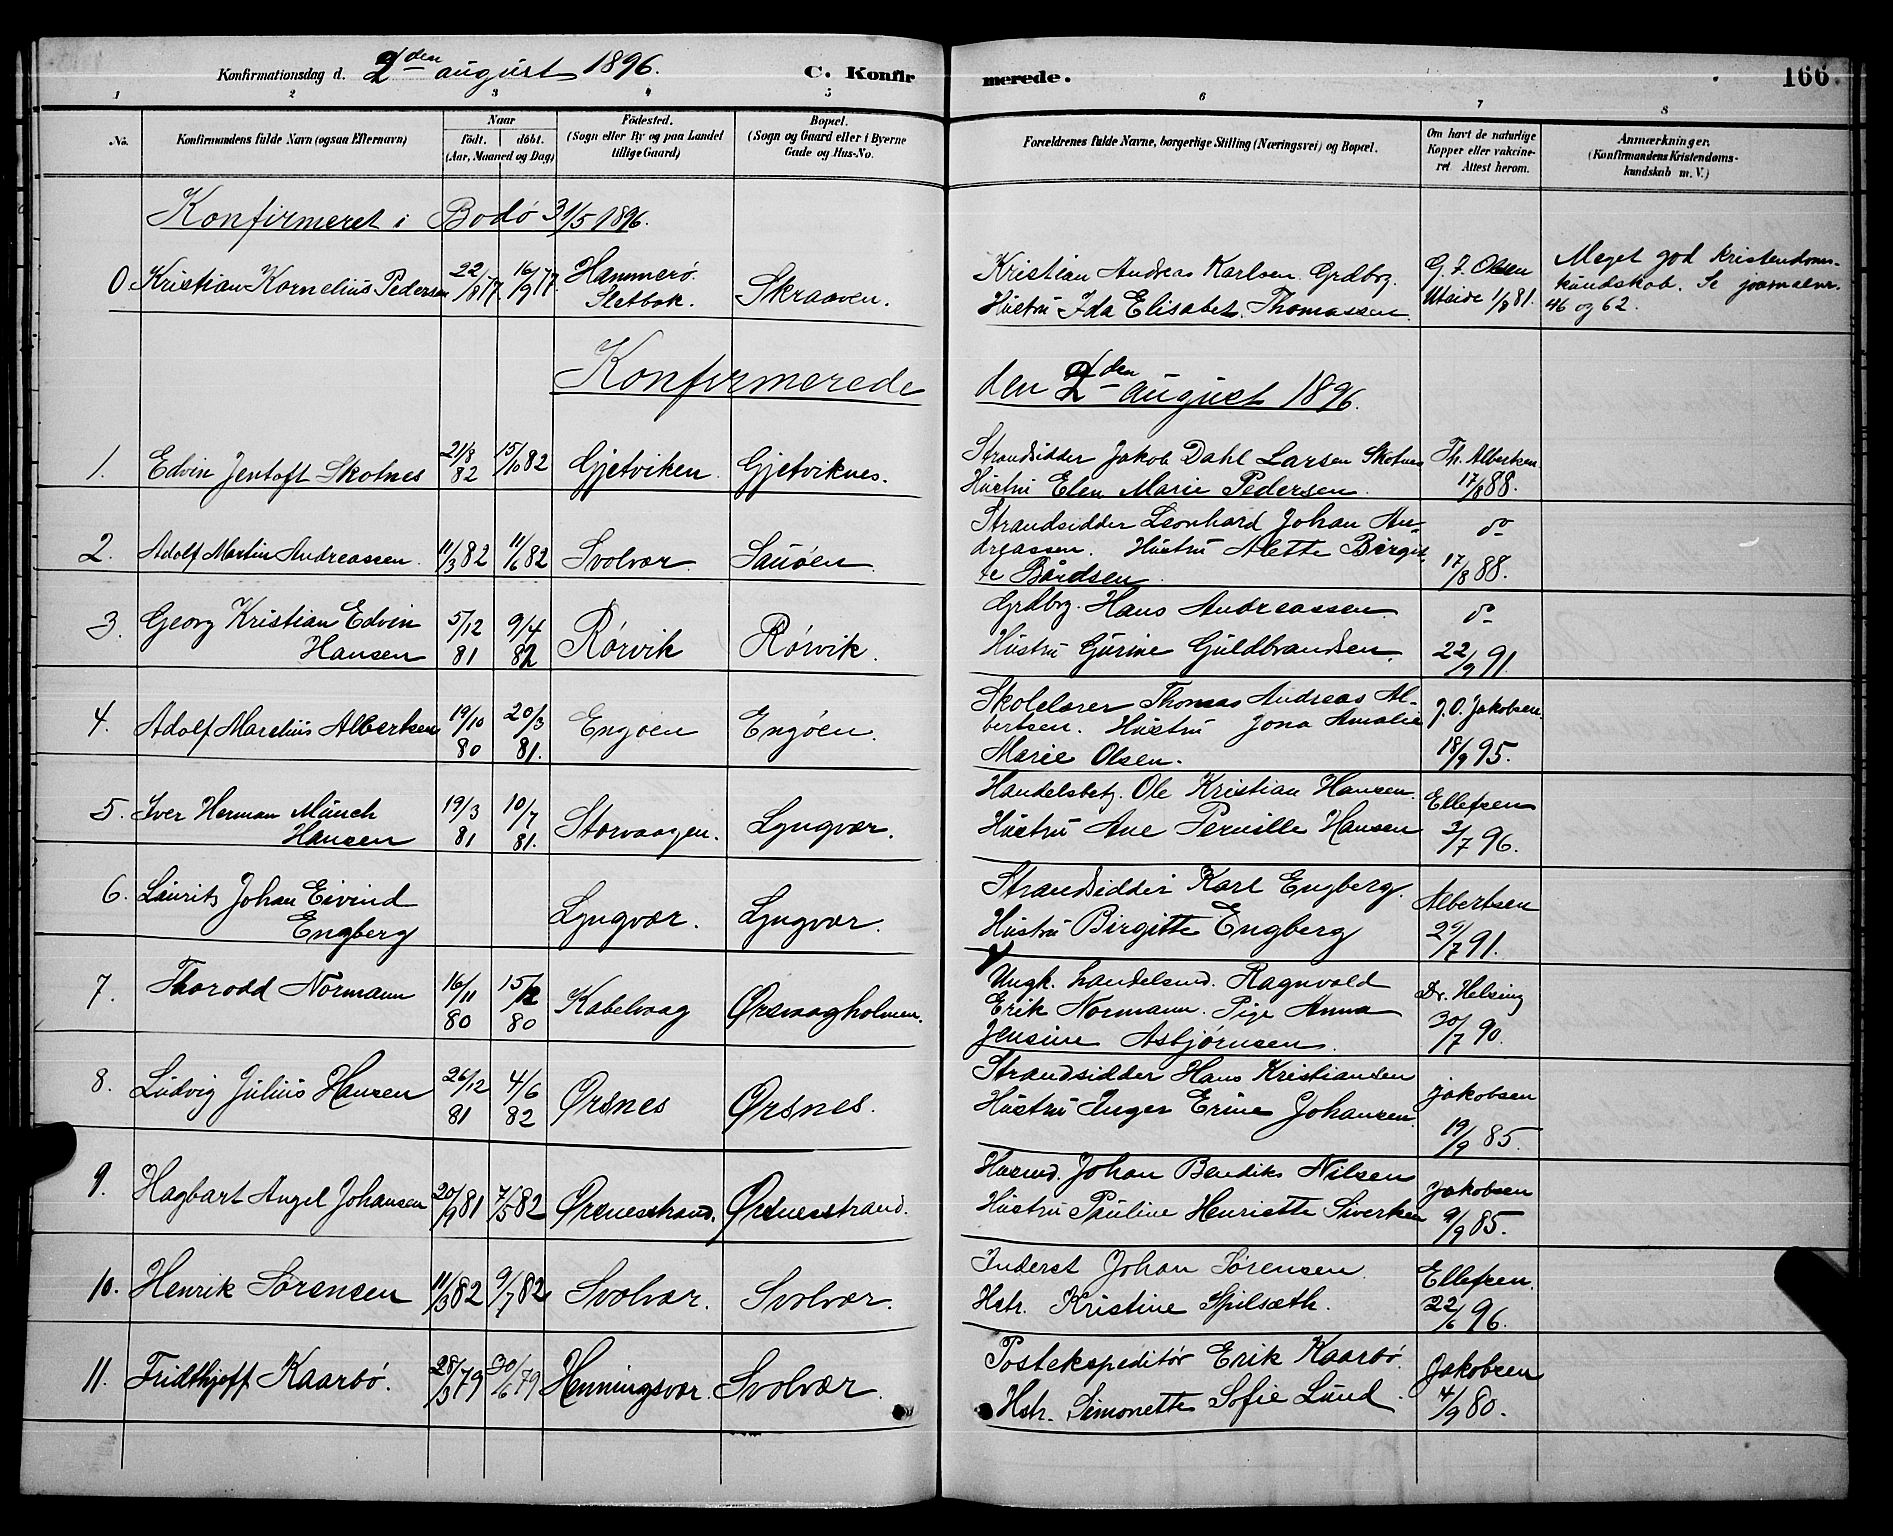 Konfirmationsdag d. 2den august 1896. C. Konfirmerede. 166
1 2 3 4 5 6 7 8
No. Konfirmandens fulde Navn (ogsaa Efternavn) Naar født. døbt. (Aar, Maaned og Dag) Fødested. (Sogn eller By og paa Landet tillige Gaard) Bopæl. (Sogn og Gaard eller i Byerne Gade og Hus-No. Forældrenes fulde Navne, borgerlige Stilling (Næringsvei) og Bopæl. Om havt de naturlige Kopper eller vakcineret Attest herom. Anmærkninger. (Konfirmandens Kristendomskundskab m. V.)
Konfirmeret i Bodø 31/5 1896.
0 Kristian Kornelius Pedersen 22/8 77. 16/9 77. Hammerø. Sletbak. Skraaven. Kristian Andreas Karlsen Grdbrg. Hustru Ida Elisabet Thomassen. G. F. Olsen 1/8 81. Meget god kristendomskundskab. Se journalnr. 46 og 62.
Konfirmerede den 2den august 1896.
1. Edvin Jentoft Skotnes 21/8 82 15/10 82 Gjetviken. Gjetviknes. Strandsidder Jakob Dahl Larsen Skotnes Hustru Elen Marie Pedersen. Th. Albertsen 17/8 88.
2. Adolf Martin Andreassen. 11/3 82 11/6 82 Svolvær. Sauøen. Strandsidder Leonhard Johan Andreassen. Hustru Alette Birgitte Bårdsen. do 17/8 88.
3. Georg Kristian Edvin Hansen 5/12 81 9/4 82 Rørvik Rørvik. Grdbrg. Hans Andreassen. Hustru Gurine Guldbrandsen. do 22/9 91.
4. Adolf Marelius Albertsen 19/10 80 20/3 81. Engøen Engøen. Skolelærer Thomas Andreas Albertsen. Hustru Jona Amalie Marie Olsen. J. O. Jakobsen. 18/9 95.
5. Iver Herman Münch Hansen 19/3 81 10/7 81. Storvaagen. Lyngvær. Handelsbetj. Ole Kristian Hansen. Hustru Ane Pernille Hansen Ellefsen 2/7 96.
6. Laurits Johan Eivind Engberg Lyngvær. Lyngvær. Strandsidder Karl Engberg. Hustru Birgitte Engberg Albertsen 29/7 91.
7. Thorodd Normann 16/11 80 15/12 80 Kabelvaag Ørsvaagholmen. Ungk. handelsmd. Ragnvald Erik Normann. Pige Anna Jensine Asbjørnsen. Dr. Helsing 30/7 90.
8. Ludvig Julius Hansen 26/12 81 4/6 82 Ørsnes Ørsnes. Strandsidder Hans Kristiansen Hustru Inger Erine Johansen. Jakobsen 19/9 85.
9. Hagbart Angel Johansen 20/9 81 7/5 82 Ørsnesstrand. Ørsnesstrand. Husmd. Johan Bendiks Nilsen Hustru Pauline Henriette Sivertsen Jakobsen 9/9 85.
10. Henrik Sørensen 11/3 82 9/7 82 Svolvær. Svolvær. Inderst Johan Sørensen. Hstr. Kristine Spilsæth. Ellefsen. 22/6 96.
11. Fridthjoff Kaarbø. 28/3 79 30/6 79 Henningsvær. Svolvær. Postekspeditør Erik Kaarbø. Hstr. Simonette Sofie Lund. Jakobsen 4/9 80.